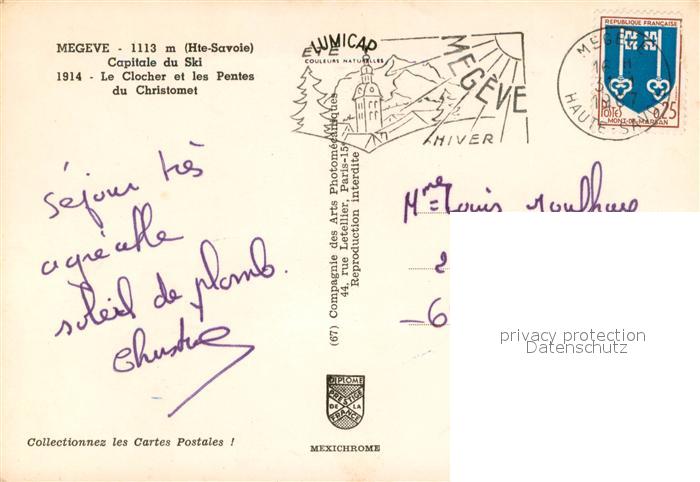 MEGEVE - 1113 m (Hte-Savoie)
Capitale du Ski
1914 - Le Clocher et les Pentes
du Christomet
Séjour très
agréable
soleil de plomb.
Christine
Collectionnez les Cartes Postales !
LUMICAP
COULEURS NATURELLES
ETE
MEGÈVE
HIVER
(67) Compagnie des Arts Photomécaniques
44, rue Letellier, Paris-15e
Reproduction interdite
DIPLOME
PRESTIGE
DE LA
FRANCE
MEXICHROME
MEGEVE
HAUTE-SAVOIE
REPUBLIQUE FRANÇAISE
POSTES 0,25
MONT-DE-MARSAN
Mme Louis
2
-6
privacy protection
Datenschutz